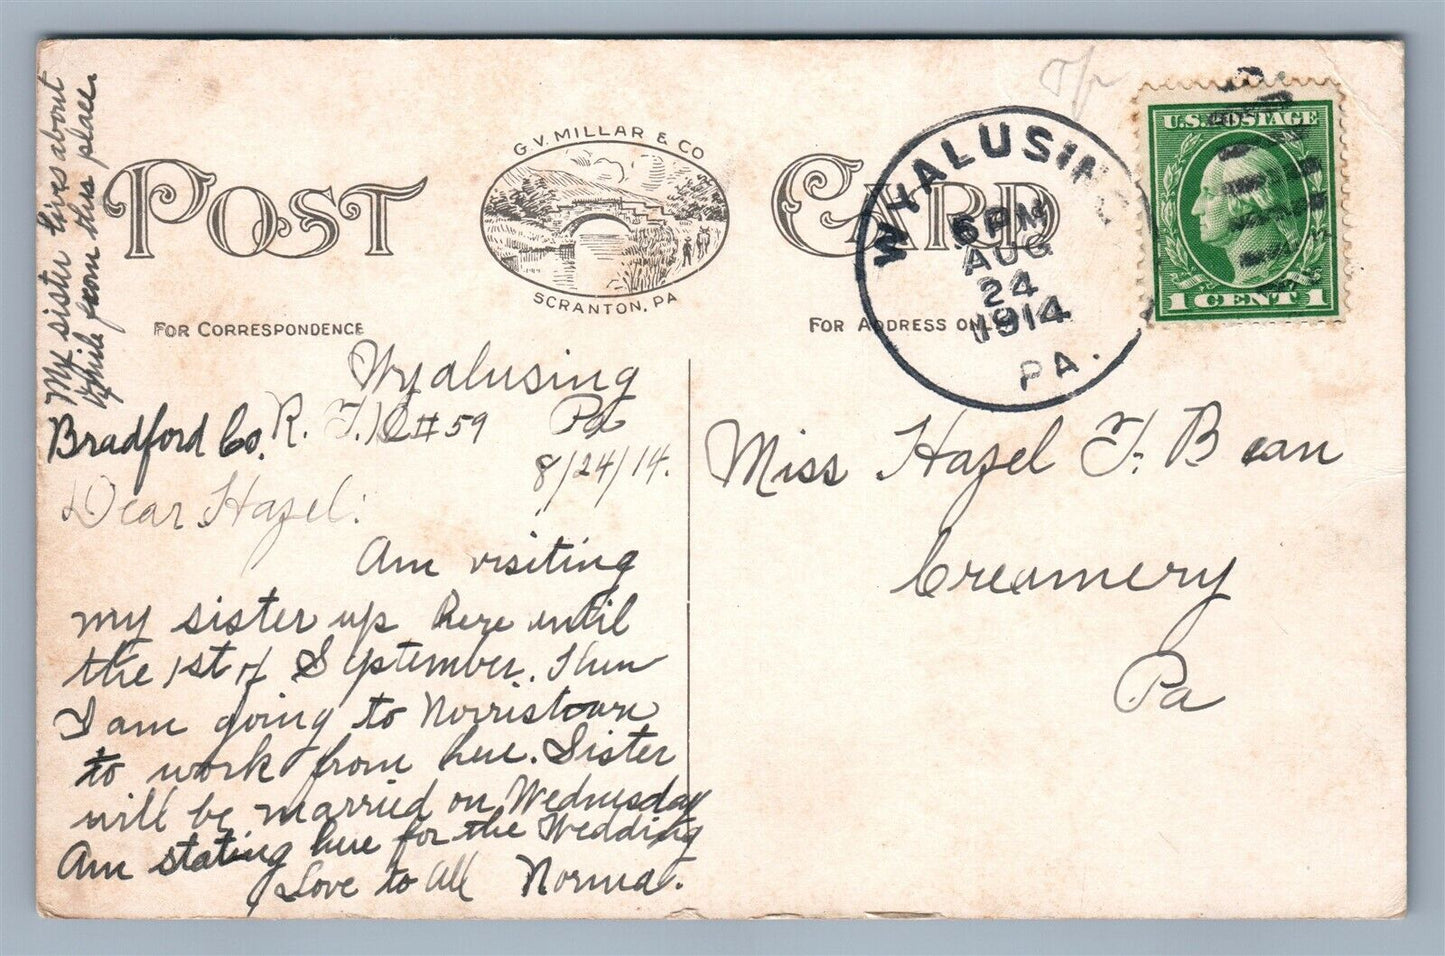 POST CARD
G.V. MILLAR & CO
SCRANTON, PA
FOR CORRESPONDENCE
FOR ADDRESS ONLY
WYALUSING
6 PM
AUG
24
1914
PA.
U.S. POSTAGE
1 CENT 1
My sister lives about
while from this place
Wyalusing
Bradford Co. R. F. D #59 Pa
8/24/14.
Dear Hazel:
Am visiting
my sister up here until
the 1st of September. Then
I am going to Norristown
to work from here. Sister
will be married on Wednesday
Am stating here for the Wedding
Love to all Norma.
Miss Hazel F. Bean
Creamery
Pa